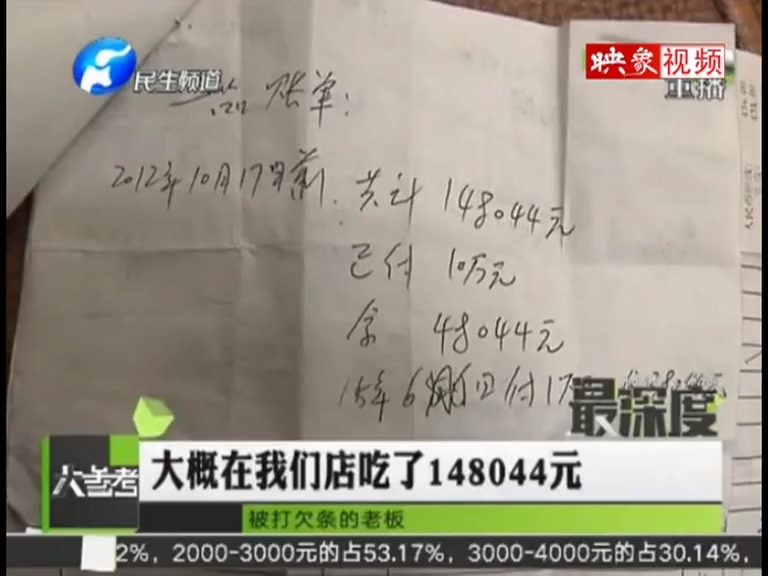 民生频道
映象视频
重播
账单：
2012年10月17日前 共计 148044元
已付 10万元
余 48044元
15年6月 付 1万
最深度
大参考
大概在我们店吃了148044元
被打欠条的老板
2%，2000-3000元的占53.17%，3000-4000元的占30.14%，